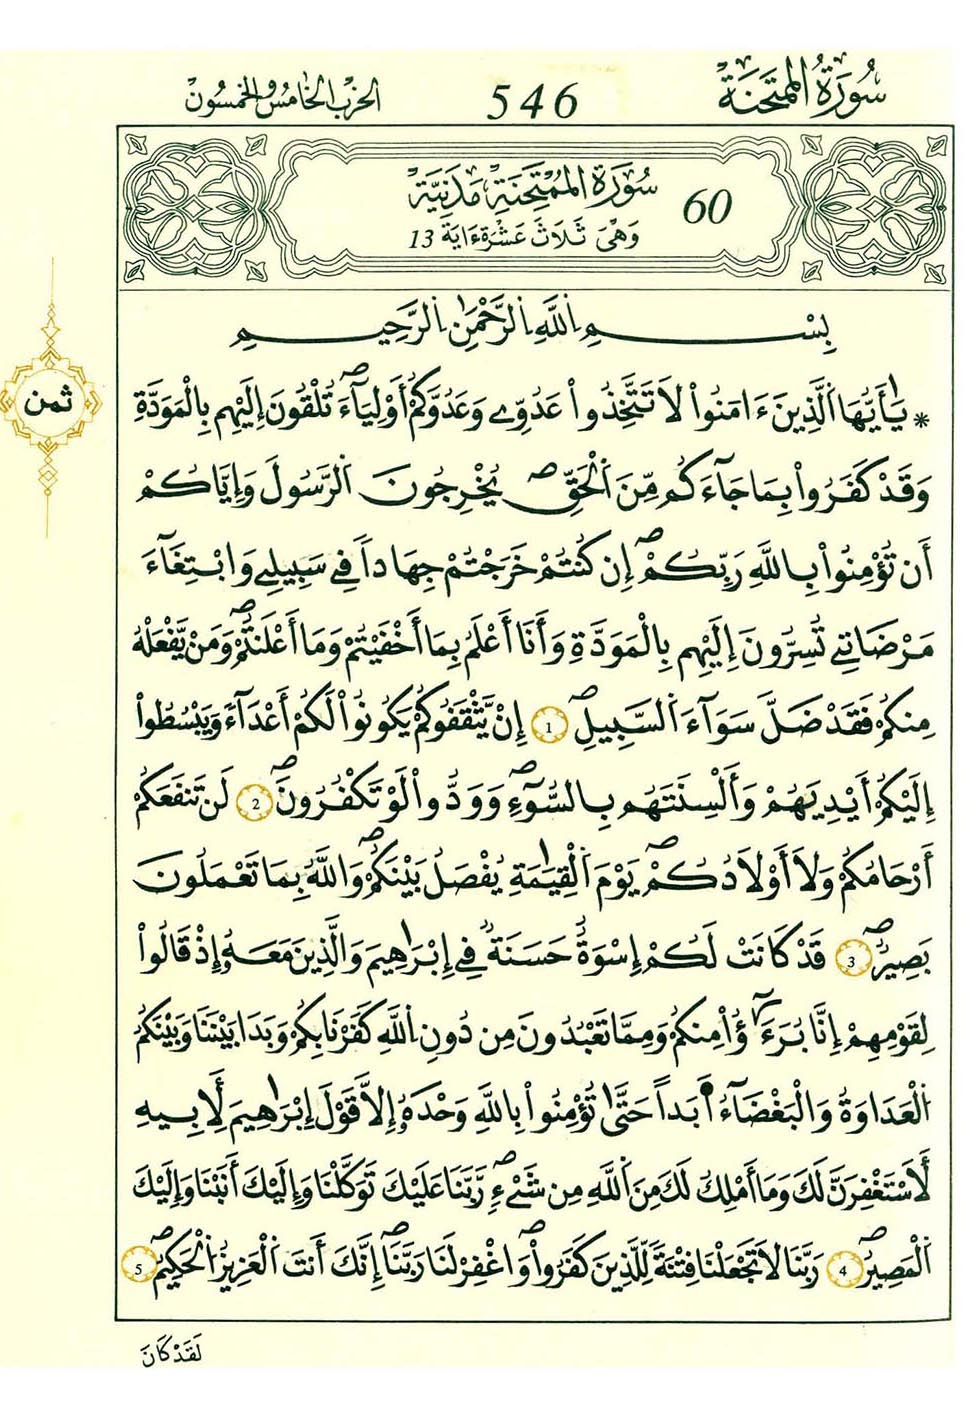 سُورَةُ الْمُمْتَحَنَةِ 546 الحزب الخامس والخمسون
سُورَةُ الْمُمْتَحَنَةِ مَدَنِيَّةٌ 60
وَهْيَ ثَلَاثَ عَشْرَةَ ءَايَةً 13
بِسْمِ اِللَّهِ اِلرَّحْمَٰنِ اِلرَّحِيمِ
* يَٰأَيُّهَا اَلَّذِينَ ءَامَنُواْ لَا تَتَّخِذُواْ عَدُوِّے وَعَدُوَّكُمُۥٓ أَوْلِيَآءَ تُلْقُونَ إِلَيْهِم بِالْمَوَدَّةِ
وَقَدْ كَفَرُواْ بِمَا جَآءَكُم مِّنَ اَلْحَقِّۖ يُخْرِجُونَ اَلرَّسُولَ وَإِيَّاكُمْ
أَن تُؤْمِنُواْ بِاللَّهِ رَبِّكُمْۖ إِن كُنتُمْ خَرَجْتُمْ جِهَاداً فِے سَبِيلِے وَابْتِغَآءَ
مَرْضَاتِے تُسِرُّونَ إِلَيْهِم بِالْمَوَدَّةِ وَأَنَا أَعْلَمُ بِمَا أَخْفَيْتُمْ وَمَا أَعْلَنتُمْۖ وَمَنْ يَّفْعَلْهُ
مِنكُمْ فَقَدْ ضَلَّ سَوَآءَ اَلسَّبِيلِۖ 1 إِنْ يَّثْقَفُوكُمْ يَكُونُواْ لَكُمْ أَعْدَآءً وَيَبْسُطُواْ
إِلَيْكُمْ أَيْدِيَهُمْ وَأَلْسِنَتَهُم بِالسُّوٓءِۖ وَوَدُّواْ لَوْ تَكْفُرُونَۖ 2 لَن تَنفَعَكُمْ
أَرْحَامُكُمْ وَلَا أَوْلَادُكُمْۖ يَوْمَ اَلْقِيَٰمَةِ يُفْصَلُ بَيْنَكُمْۖ وَاللَّهُ بِمَا تَعْمَلُونَ
بَصِيرٌۖ 3 قَدْ كَانَتْ لَكُمْ إِسْوَةٌ حَسَنَةٌ فِے إِبْرَٰهِيمَ وَالَّذِينَ مَعَهُۥٓ إِذْ قَالُواْ
لِقَوْمِهِمْ إِنَّا بُرَءَٰٓؤُاْ مِنكُمْ وَمِمَّا تَعْبُدُونَ مِن دُونِ اِللَّهِ كَفَرْنَا بِكُمْ وَبَدَا بَيْنَنَا وَبَيْنَكُمُ
اُلْعَدَاوَةُ وَالْبَغْضَآءُ اَ۬بَداً حَتَّىٰ تُؤْمِنُواْ بِاللَّهِ وَحْدَهُۥٓ إِلَّا قَوْلَ إِبْرَٰهِيمَ لِأَبِيهِ
لَأَسْتَغْفِرَنَّ لَكَ وَمَا أَمْلِكُ لَكَ مِنَ اَللَّهِ مِن شَےْءٍۖ رَّبَّنَا عَلَيْكَ تَوَكَّلْنَا وَإِلَيْكَ أَنَبْنَا وَإِلَيْكَ
اَلْمَصِيرُۖ 4 رَبَّنَا لَا تَجْعَلْنَا فِتْنَةً لِّلَّذِينَ كَفَرُواْۖ وَاغْفِرْ لَنَا رَبَّنَاۖ إِنَّكَ أَنتَ اَلْعَزِيزُ اُلْحَكِيمُۖ 5
لَقَدْ كَانَ
ثمن